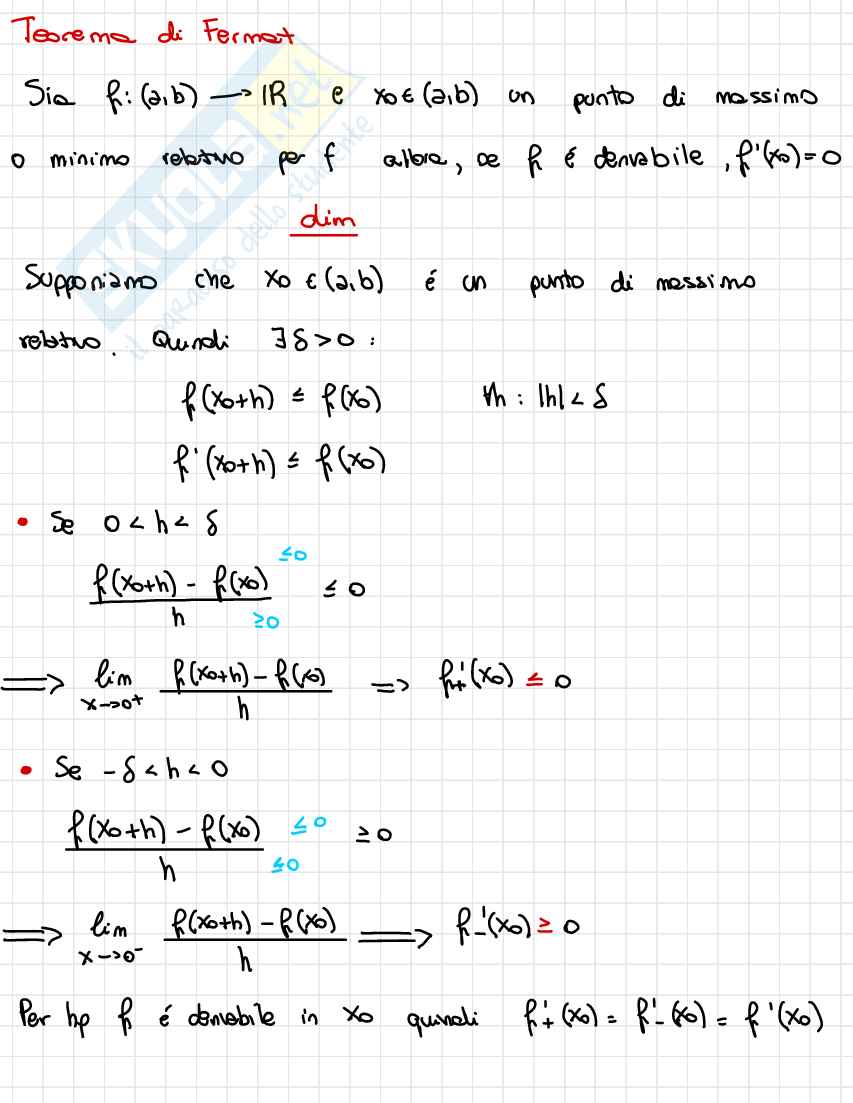 Teorema di Fermat
Sia f: (a,b) → ℝ e x₀ ∈ (a,b) un punto di massimo
o minimo relativo per f allora, se f é derivabile, f'(x₀)=0
dim
Supponiamo che x₀ ∈ (a,b) é un punto di massimo
relativo. Quindi ∃δ>0 :
f(x₀+h) ≤ f(x₀) ∀h : |h| < δ
f'(x₀+h) ≤ f(x₀)
• Se 0 < h < δ
≤0
f(x₀+h) - f(x₀)
≤ 0
h ≥0
⟹ lim f(x₀+h) - f(x₀) => f₊'(x₀) ≤ 0
x→0⁺ h
• Se -δ < h < 0
f(x₀+h) - f(x₀) ≤0 ≥0
h ≤0
⟹ lim f(x₀+h) - f(x₀) ⟹ f₋'(x₀) ≥ 0
x→0⁻ h
Per hp f é derivabile in x₀ quindi f'₊(x₀) = f'₋(x₀) = f'(x₀)
SKUOLA.net
il paradiso dello studente